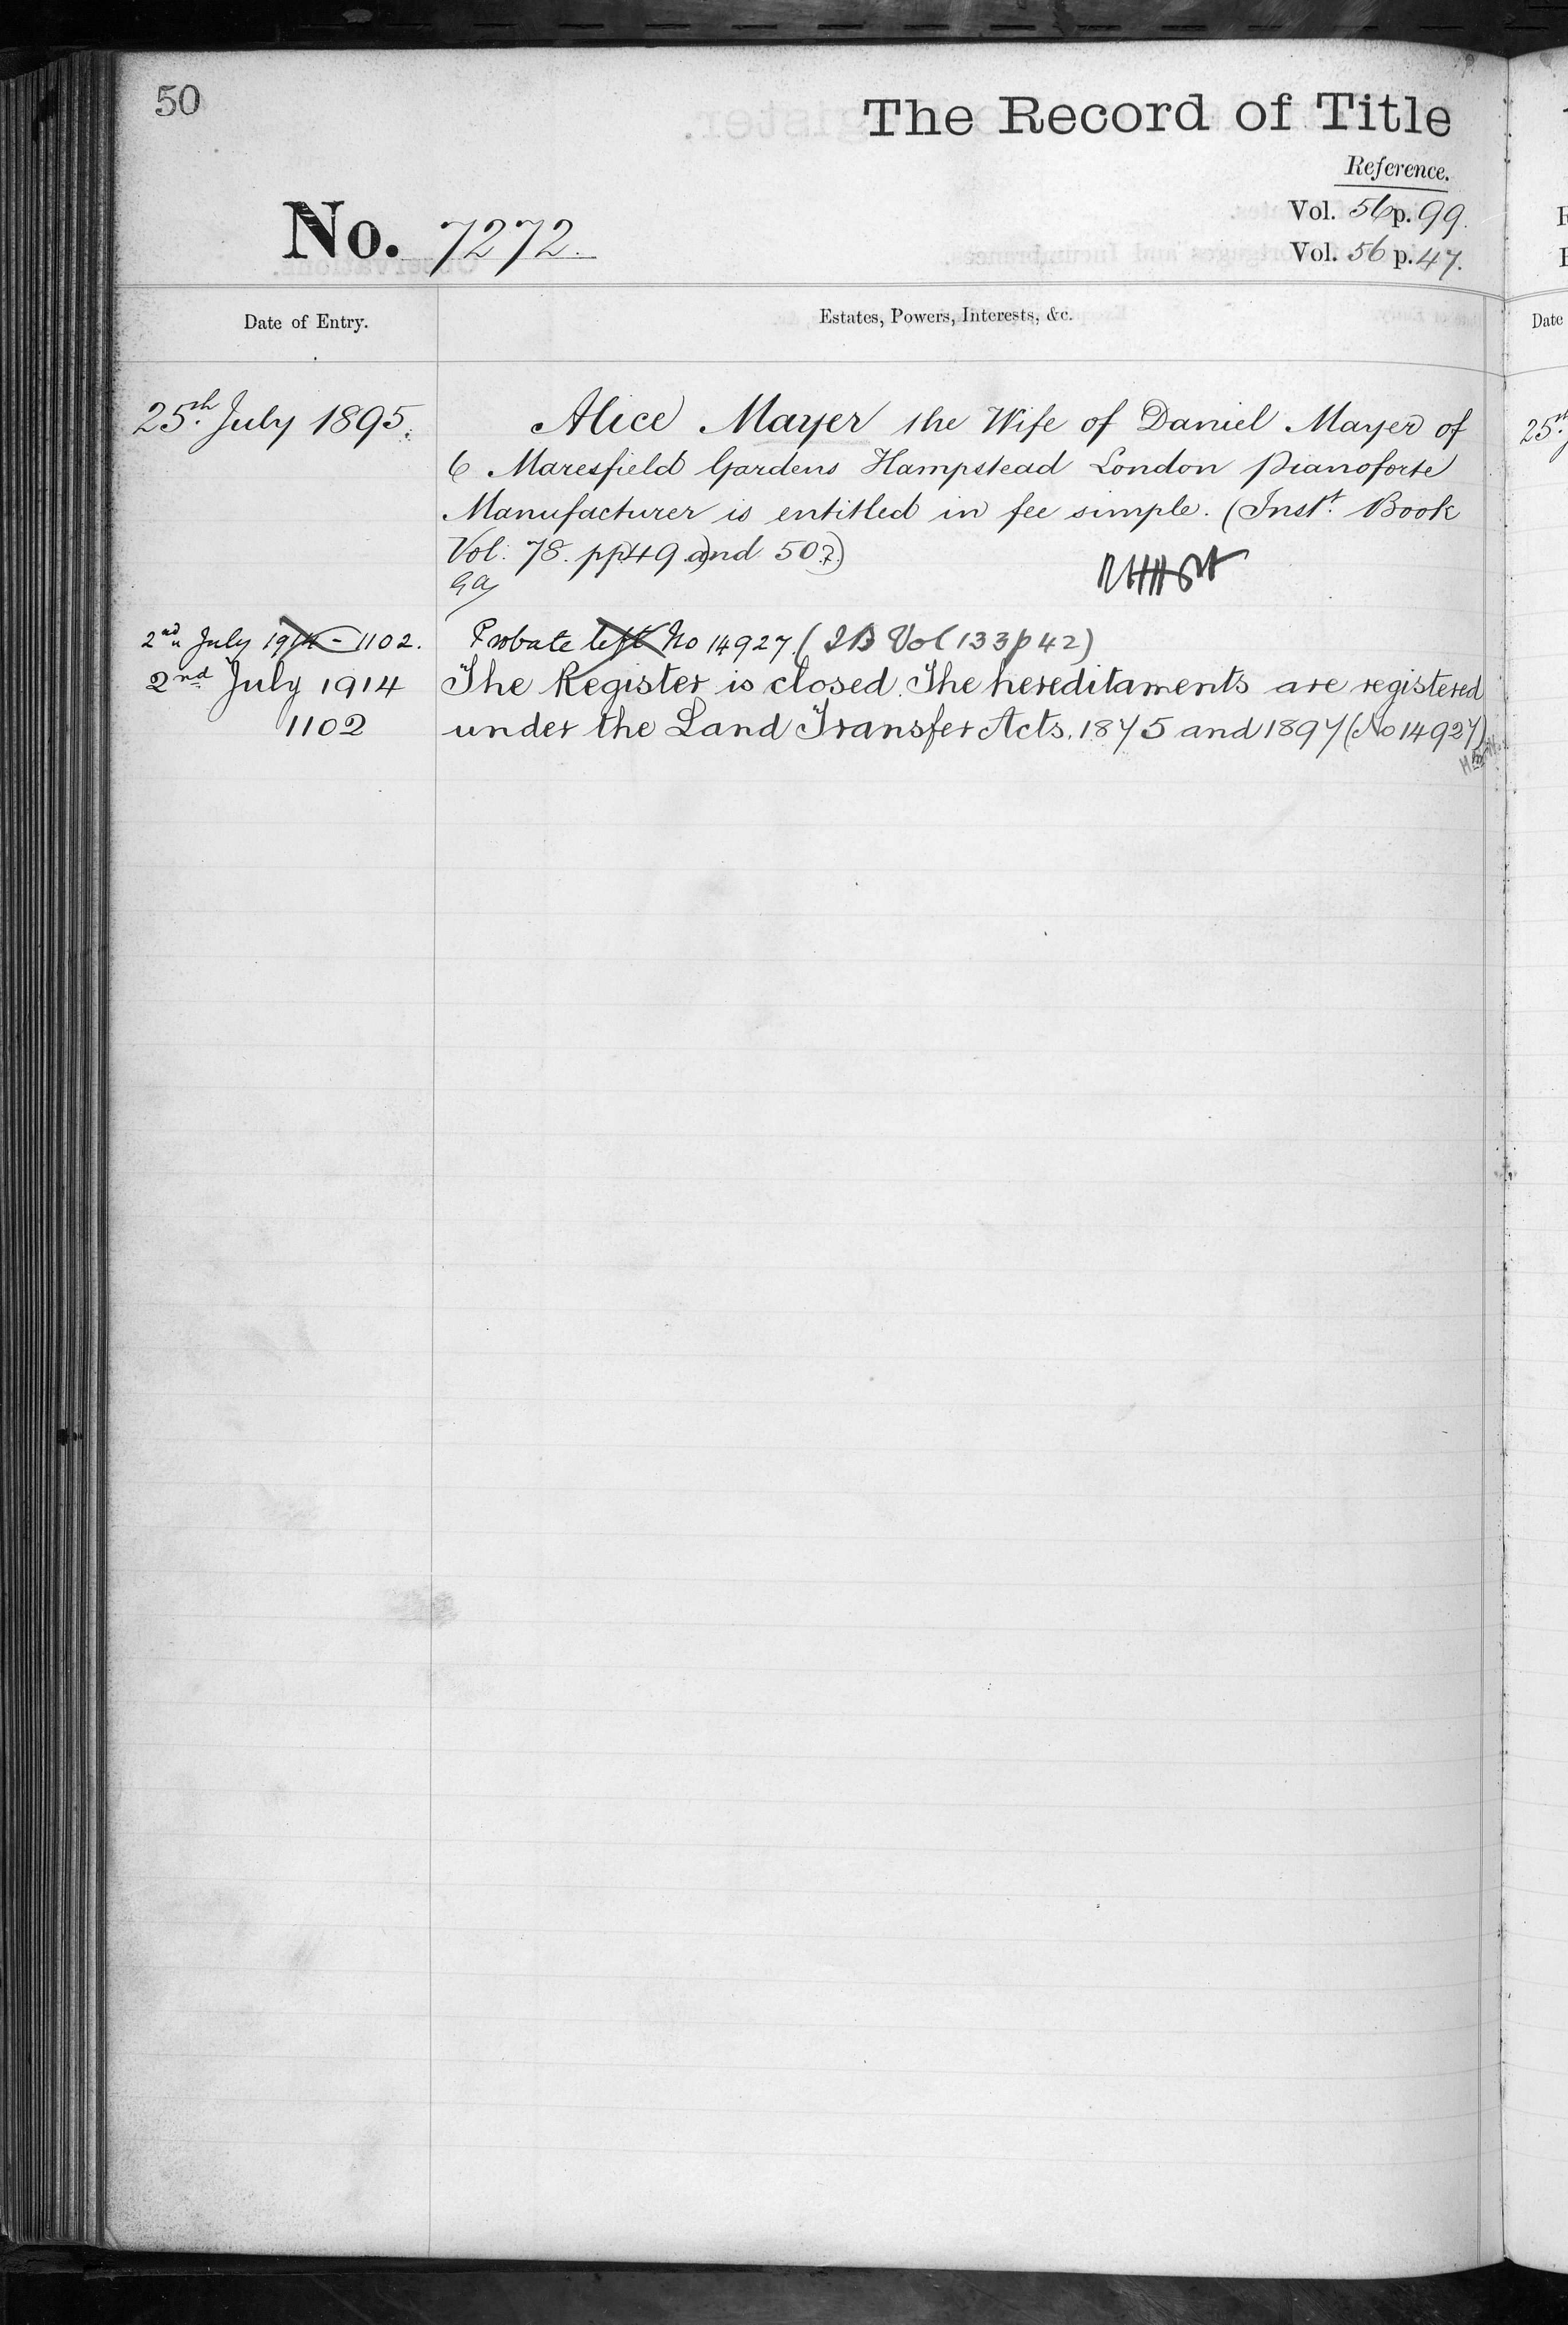 50
The Record of Title
Reference.
Vol. 56 p. 99.
No. 7272.
Vol. 56 p. 47.
Date of Entry.
Estates, Powers, Interests, &c.
Date
25th July 1895.
Alice Mayer the Wife of Daniel Mayer of
25th
6 Maresfield Gardens Hampstead London Pianoforte
Manufacturer is entitled in fee simple. (Inst. Book
Vol: 78. pp 49 and 50.)
2nd July 1914 - 1102.
Probate left No 14927. (IB Vol 133 p 42)
2nd July 1914
The Register is closed. The hereditaments are registered
1102
under the Land Transfer Acts. 1875 and 1897 (No 14927)